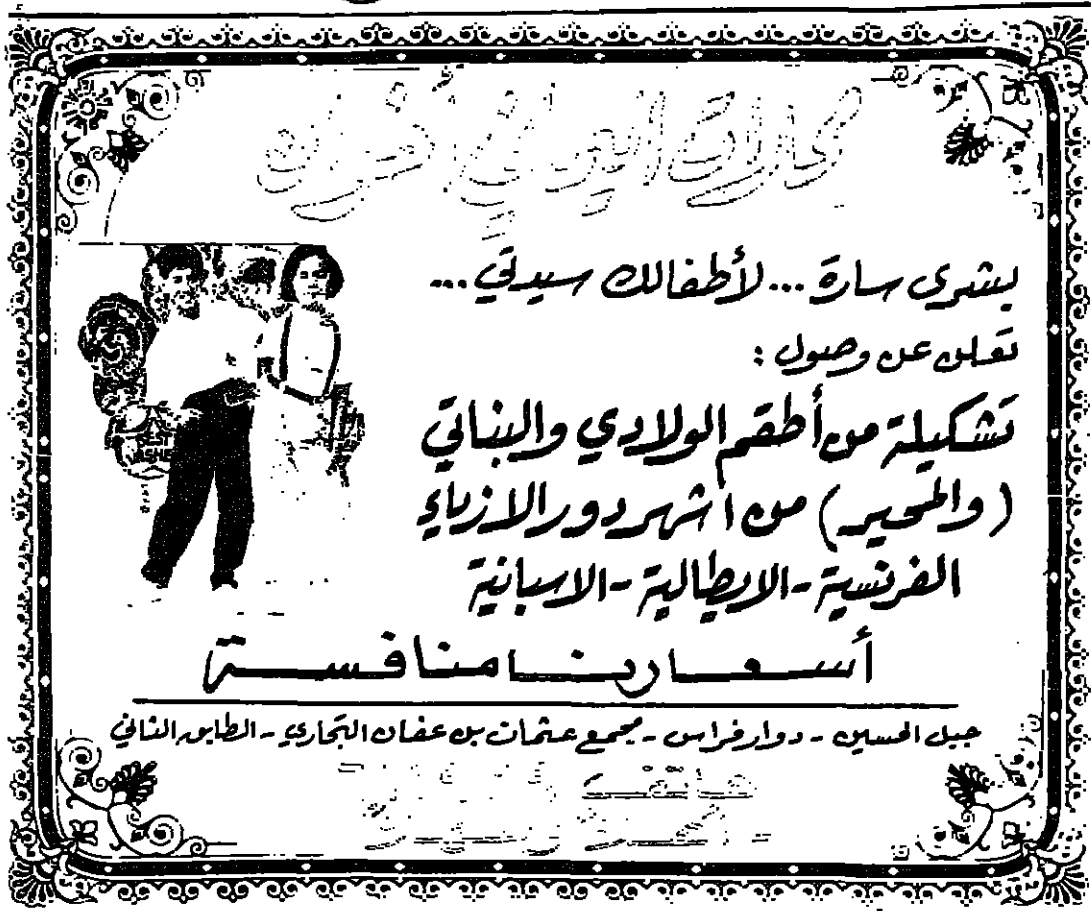 بشرى سارة... لأطفالك سيدتي...
تعلن عن وصول :
تشكيلة من أطقم الولادي والبناتي
(والمحير) من اشهر دور الازياء
الفرنسية - الايطالية - الاسبانية
أسعارنا منافسة
جبل الحسين - دوار فراس - مجمع عثمان بن عفان التجاري - الطابق الثاني
هاتف